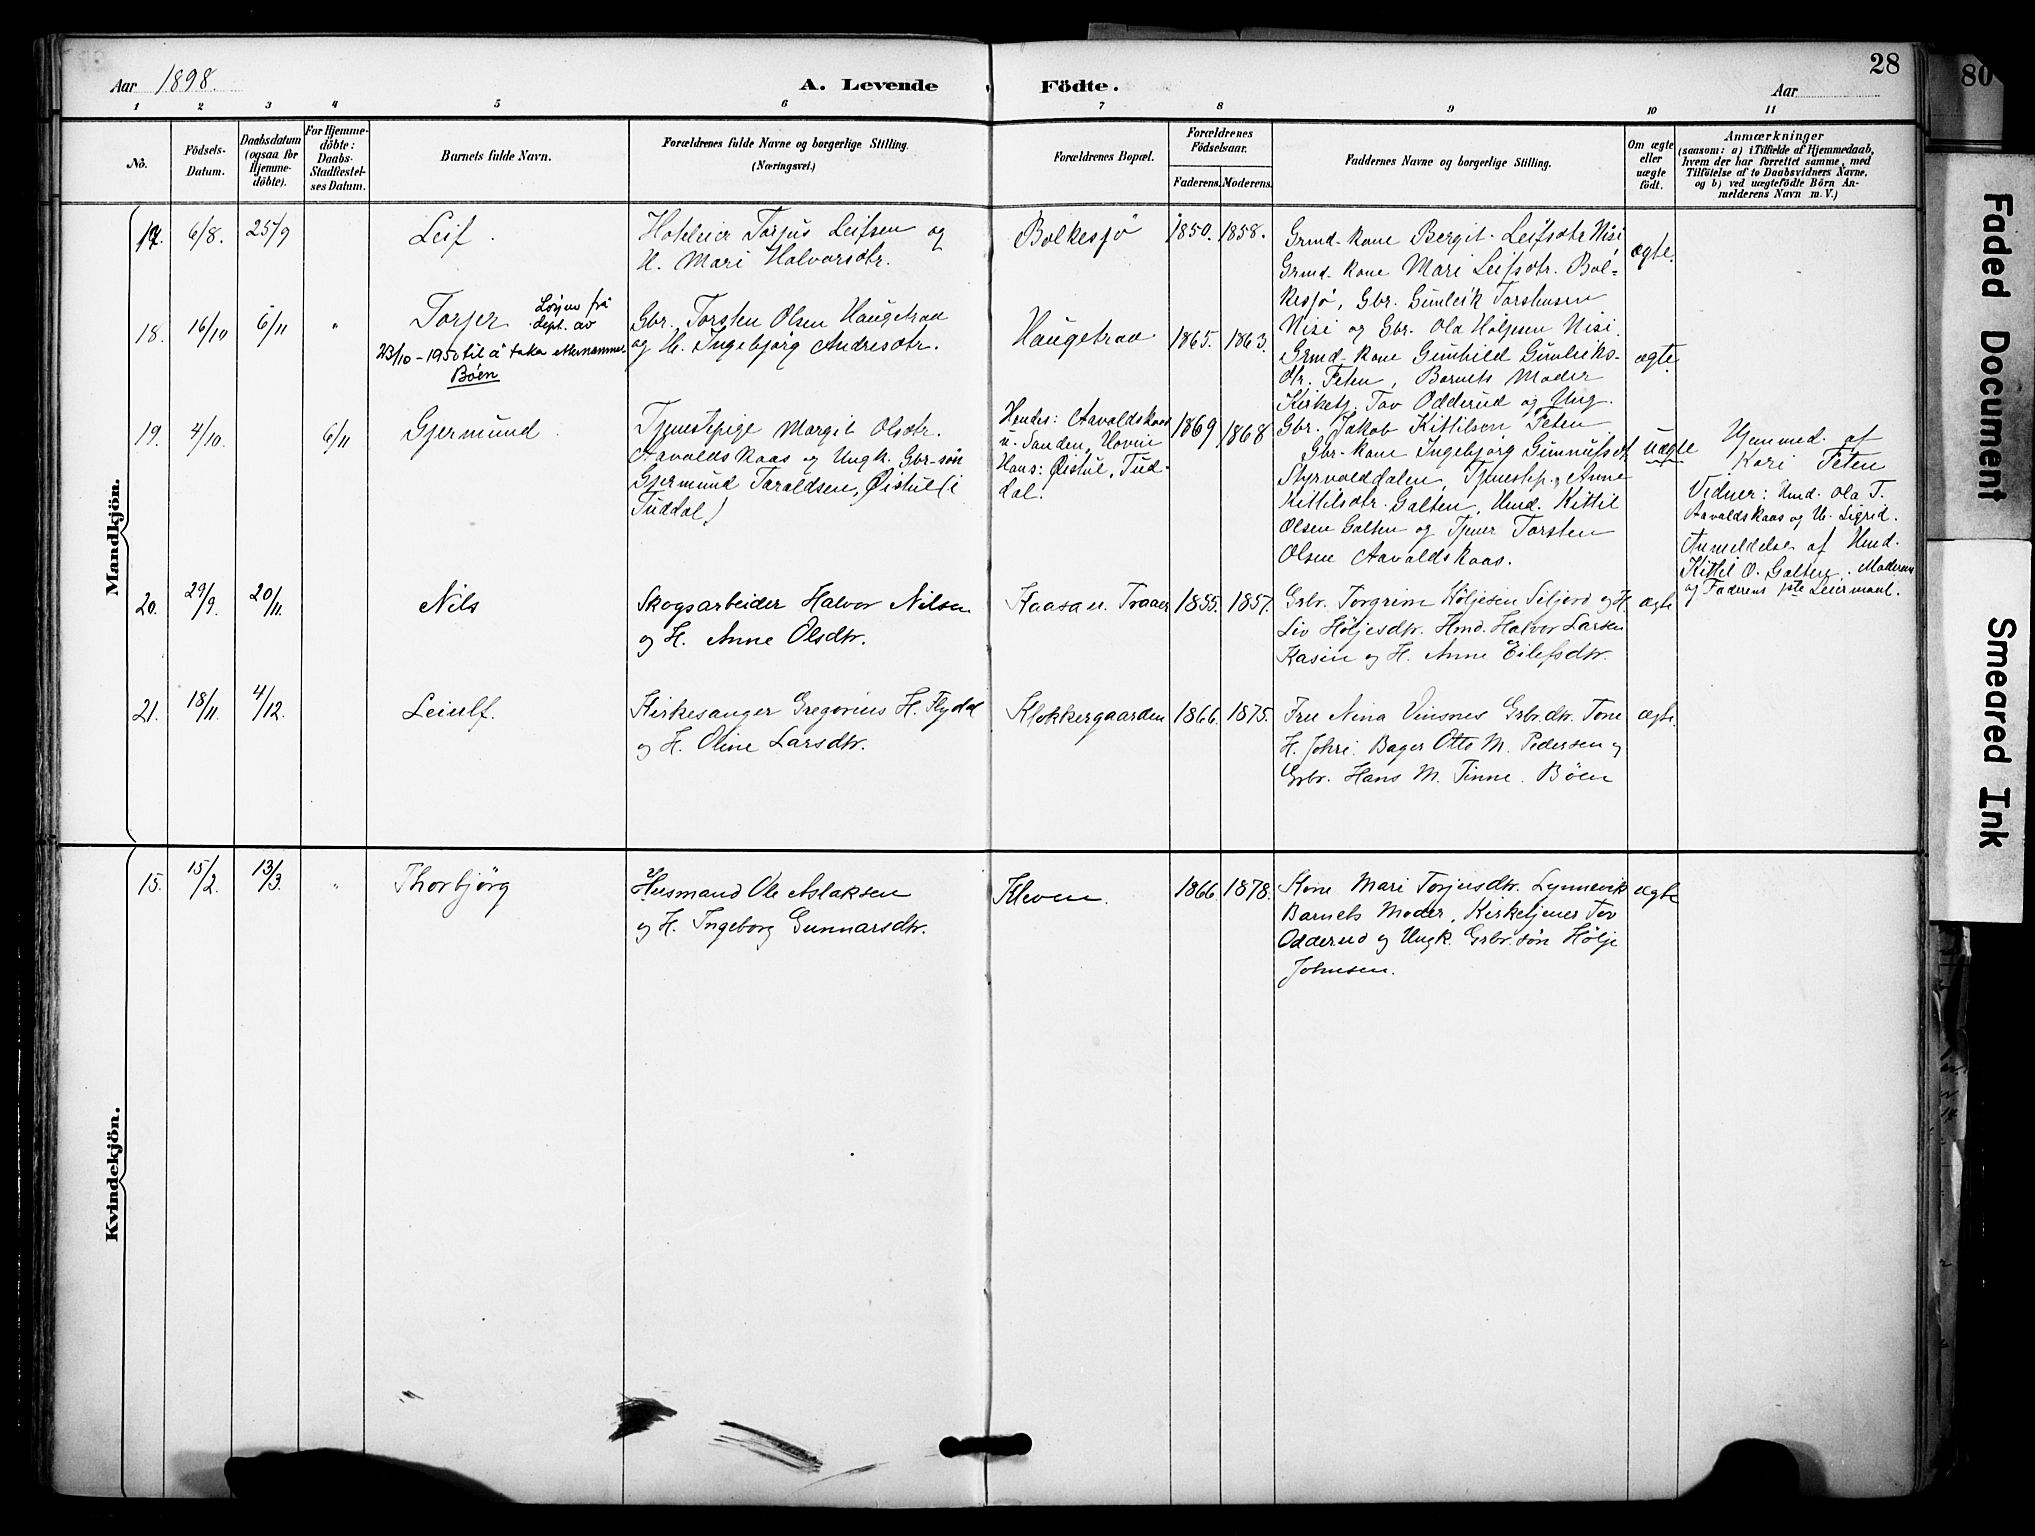 28
80
Aar 1898.
A. Levende Födte.
Aar
1 2 3 4 5 6 7 8 9 10 11
No.
Födsels-Datum.
Daabsdatum (ogsaa for Hjemme-döbte).
For Hjemme-döbte: Daabs-Stadfæstel-ses Datum.
Barnets fulde Navn.
Forældrenes fulde Navne og borgerlige Stilling.
(Næringsvei.)
Forældrenes Bopæl.
Forældrenes Födselsaar.
Faderens.
Moderens.
Faddernes Navne og borgerlige Stilling.
Om ægte eller uægte födt.
Anmærkninger
(saasom: a) i Tilfælde af Hjemmedaab,
hvem der har forrettet samme, med
Tilföielse af to Daabsvidners Navne,
og b) ved uægtefödte Börn An-
melderens Navn m. V.)
Mandkjön.
17. 6/8. 25/9 Leif.
Hoteleier Torjus Leifsen og
H. Mari Halvorsdtr.
Bolkesjø 1850. 1858.
Grmd. kone Bergit Leifsdtr Nisi,
Grmd. kone Mari Leifsdtr. Bol-
kesjø, Gbr. Gunleik Torsteinsen
Nisi og Gbr. Ola Høljesen Nisi.
ægte.
18. 16/10 6/11 " Torjer
Løyve frå
dept. av
23/10-1950 til å taka etternamnet
Bøen
Gbr. Torsten Olsen Haugetraa
og H. Ingebjørg Andresdtr.
Haugetraa 1865. 1863.
Grmd. kone Gunhild Gunleiks-
dtr. Feten, Barnets Moder
Kirketj. Tov Odderud og Ung.
Gbr. Jakob Kittilsen Feten
ægte.
19. 4/10. 6/11 Gjermund
Tjenestepige Margit Olsdtr.
Aavaldskaas og Ungk. Gbr-søn
Gjermund Taraldsen, Øistul (i
Tuddal)
Hendes: Aavaldskaas
u. Sanden, Hovin
Hans: Øistul, Tud-
dal.
1869 1868
Gbr-kone Ingebjørg Gunnufsdt
Styrvolddalen, Tjenestep. Anne
Kittilsdtr. Galten, Hmd. Kittil
Olsen Galten og Tjener Torsten
Olsen Aavaldskaas.
uægte
Hjemmed. af
Kari Feten
Vidner: Hmd. Ola T.
Aavaldskaas og H. Sigrid.
Anmeldelse af Hmd.
Kittil O. Galten. Moderens
og Faderens 1ste Leiermaal.
20. 29/9. 20/11. Nils
Skogsarbeider Halvor Nilsen
og H. Anne Olsdtr.
Kaasa u. Traaer 1855. 1857.
Grbr. Torgrim Høljesen Seljord og H.
Liv Høljesdtr. Hmd. Halvor Larsen
Kasin og H. Anne Eilefsdtr.
ægte
21. 18/11. 4/12. Leiulf.
Kirkesanger Gregorius H. Flydal
og H. Oline Larsdtr.
Klokkergaarden 1866. 1875.
Fru Nina Vinsnes Grbr.dtr. Tone
H. Johri. Bager Otto M. Pedersen og
Grbr. Hans M. Tinne. Bøen
ægte.
Kvindekjön.
15. 15/2. 13/3. " Thorbjörg
Husmand Ole Aslaksen
og H. Ingeborg Gunnarsdtr.
Kleven. 1866. 1878.
Kone Mari Torjusdtr. Lynnevik
Barnets Moder, Kirketjener Tov
Odderud og Ungk. Grbr. søn Hølje
Johnsen.
ægte
Faded Document
Smeared Ink